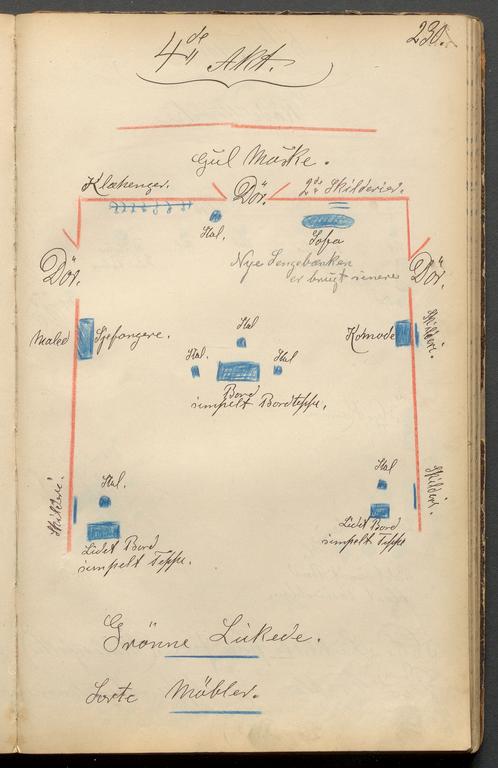 230.
4de Akt.
Gul Maske.
Klæhenger.
Dör.
2de Skilderier.
Stol.
Sofa
Nye Sengebænken
er brugt senere
Dör.
Dör.
Maled
Stol
Komode
Skilderi.
Stol.
Stol
Bord
simpelt Bordteppe.
Stol.
Stol.
Skilderi
Skilderi.
Lidet Bord
simpelt Teppe.
Lidet Bord
simpelt Teppe
Grönne Lukede.
Sorte Möbler.